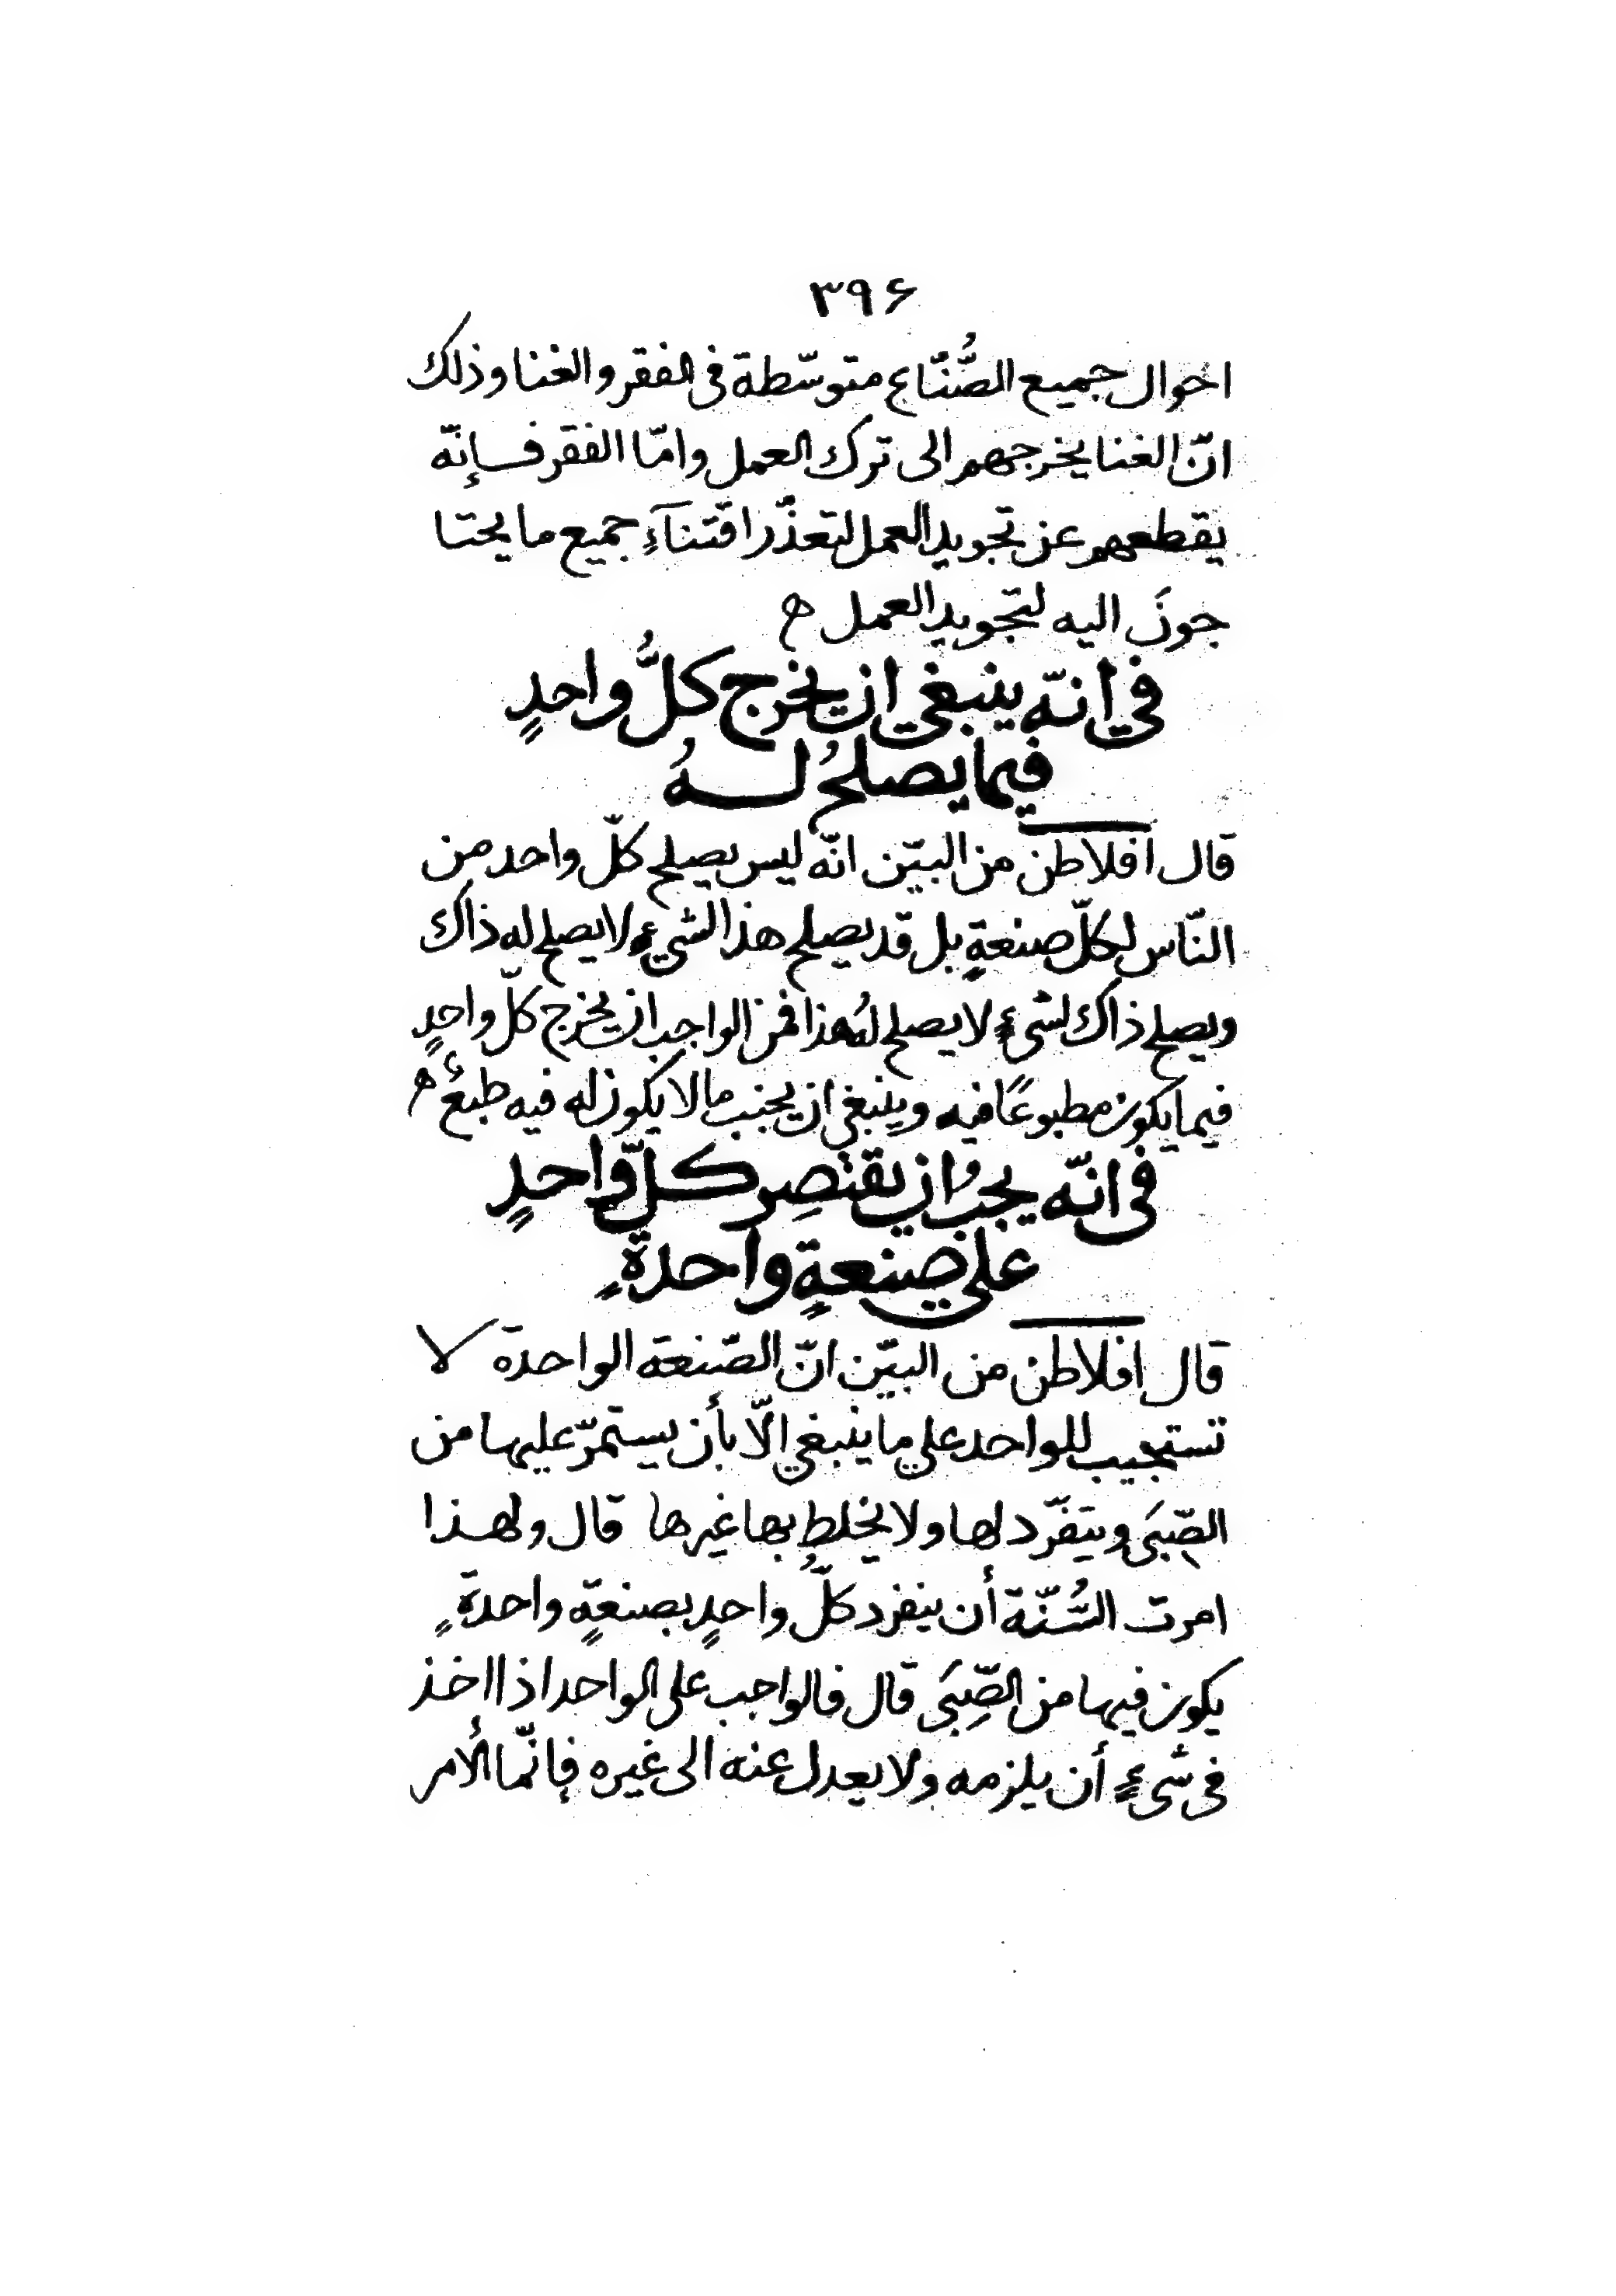 ۳۹۶
احوال جميع الصُّنّاع متوسّطة فى الفقر والغنا وذلك
انّ الغنا يخرجهم الى ترك العمل وامّا الفقر فإنّه
يقطعهم عن تجويد العمل لتعذّر اقتنآءِ جميع ما يحتا
جونَ اليه لتجويد العمل ه
في انّه ينبغي ان يخرج كلُّ واحدٍ
فيما يصلحُ لـهُ
قال افلاطن من البيّن انّه ليس يصلح كلّ واحد من
النّاس لكلّ صنعةٍ بل قد يصلح هذا الشيءٍ لا يصلح له ذاك
ويصلح ذاك لشىءٍ لا يصلح لهُ هذا فمن الواجب ان يخرج كلّ واحدٍ
فيما يكون مطبوعًا فيه وينبغي ان يجنب ما لا يكون له فيه طبعٌ ه
فى انّه يجبُ ان يقتصِر كلّ واحدٍ
علي صنعةٍ واحدةٍ
قال افلاطن من البيّن انّ الصّنعة الواحدة لا
تستجيب للواحد علي ما ينبغي الّا بأن يستمرّ عليها من
الصّبَى ويتفّرد لها ولا يخلط بها غيرها قال ولهذا
امرت السُّنّة أن ينفرد كلُّ واحدٍ بصنعةٍ واحدةٍ
يكون فيها من الصِّبَى قال فالواجب على الواحد اذا اخذ
فى شىءٍ أن يلزمه ولا يعدل عنه الى غيره فإنّما الأمر